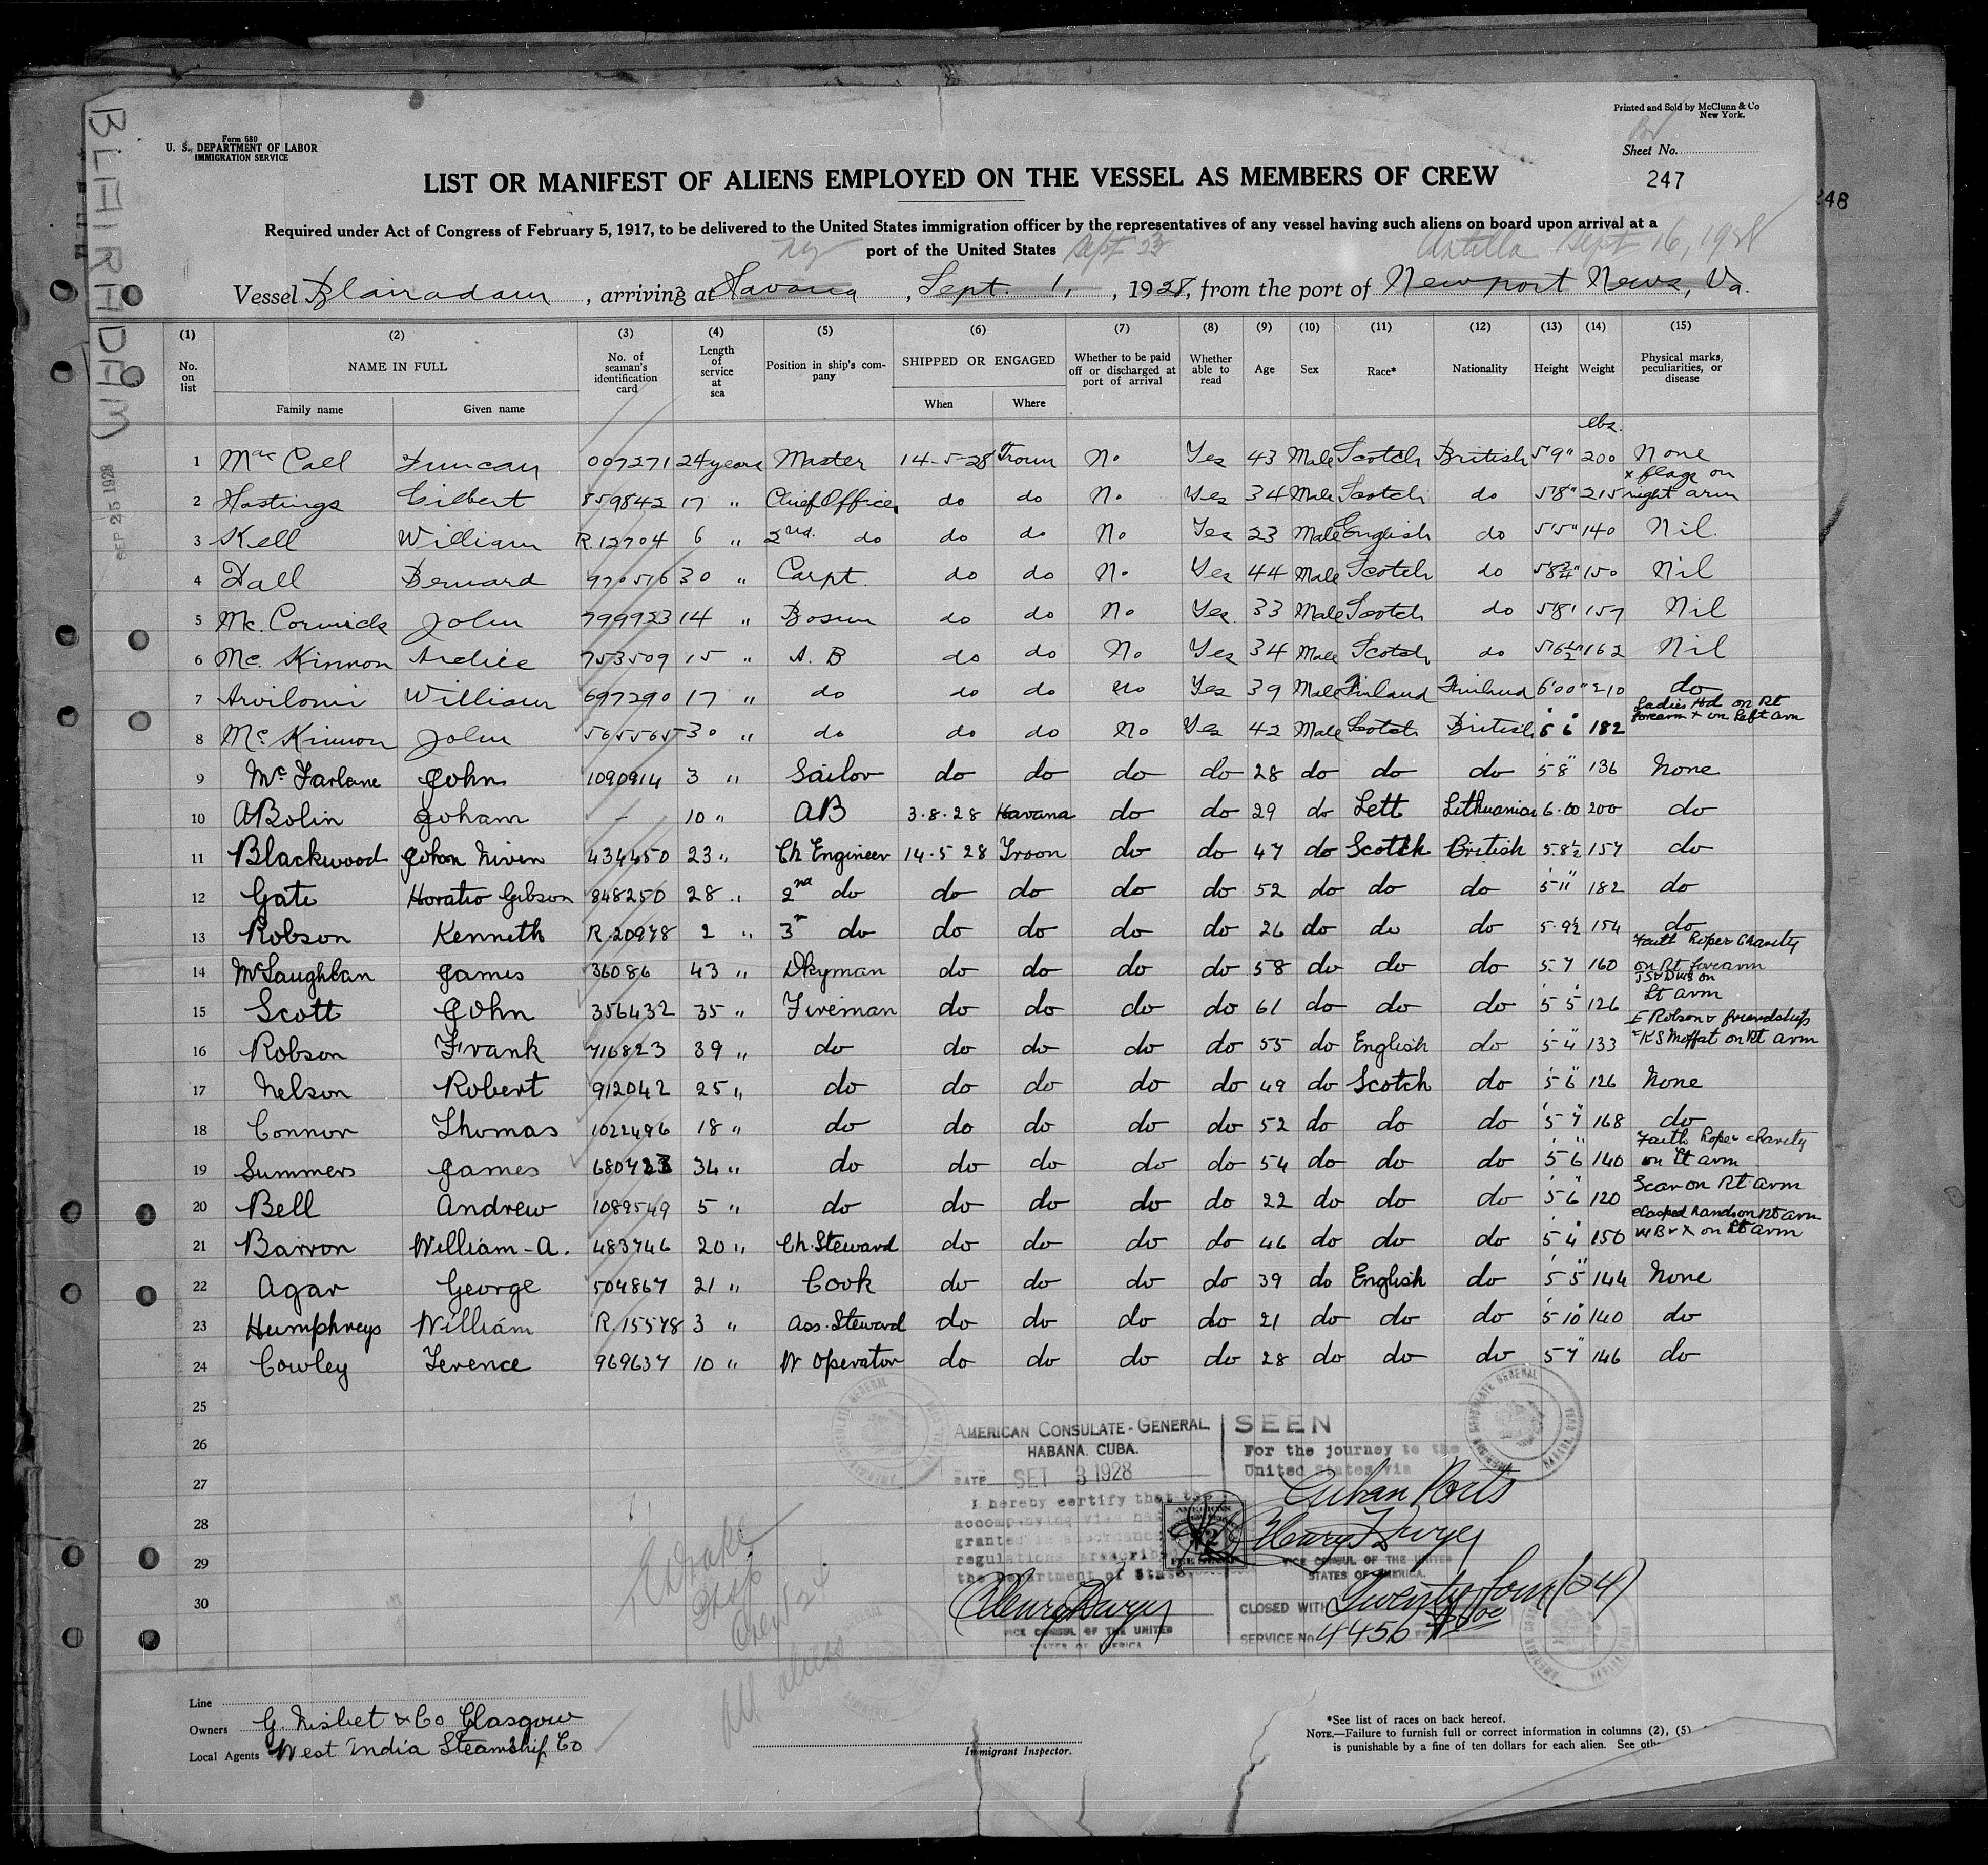 BLAIRADAM
SEP 25 1928
Form 680
U. S. DEPARTMENT OF LABOR
IMMIGRATION SERVICE
Printed and Sold by McClunn & Co
New York.
Sheet No.
247
248
LIST OR MANIFEST OF ALIENS EMPLOYED ON THE VESSEL AS MEMBERS OF CREW
Required under Act of Congress of February 5, 1917, to be delivered to the United States immigration officer by the representatives of any vessel having such aliens on board upon arrival at a
port of the United States
NY Sept 23 Antilla Sept 16, 1928
Vessel Blairadam, arriving at Havana, Sept. 1, 1928, from the port of Newport News, Va.
(1) (2) (3) (4) (5) (6) (7) (8) (9) (10) (11) (12) (13) (14) (15)
No. on list NAME IN FULL No. of seaman's identification card Length of service at sea Position in ship's company SHIPPED OR ENGAGED Whether to be paid off or discharged at port of arrival Whether able to read Age Sex Race* Nationality Height Weight Physical marks, peculiarities, or disease
Family name Given name When Where
lbs.
1 Mac Call Duncan 007271 24 years Master 14-5-28 Troon No Yes 43 Male Scotch British 5'9" 200 None
2 Hastings Gilbert 859842 17 " Chief Officer do do No Yes 34 Male Scotch do 5'8" 215 x flags on right arm
3 Kell William R.12704 6 " 2nd. do do do No Yes 23 Male English do 5'5" 140 Nil.
4 Hall Bernard 970516 30 " Carpt. do do No Yes 44 Male Scotch do 5'8¾" 150 Nil
5 Mc. Cormick John 799923 14 " Bosun do do No Yes 33 Male Scotch do 5'8' 157 Nil
6 Mc. Kinnon Archie 753509 15 " A. B do do No Yes 34 Male Scotch do 5'6½" 162 Nil
7 Arvilomi William 697290 17 " do do do No Yes 39 Male Finland Finland 6'00" 210 do
8 Mc Kinnon John 565565 30 " do do do No Yes 42 Male Scotch British 5' 6" 182 Ladies Hd on Rt forearm + on Left arm
9 Mc Farlane John 1090914 3 " Sailor do do do do 28 do do do 5 8" 136 None
10 ABolin Joham - 10 " AB 3.8.28 Havana do do 29 do Lett Lithuanian 6.00 200 do
11 Blackwood John Niven 434450 23 " Ch Engineer 14.5 28 Troon do do 47 do Scotch British 5.8½ 157 do
12 Gate Horatio Gibson 848250 28 " 2nd do do do do do 52 do do do 5'11" 182 do
13 Robson Kenneth R.20978 2 " 3r do do do do do 26 do do do 5.9½ 154 do
14 McLaughlan James 36086 43 " Dkyman do do do do 58 do do do 5.7 160 Faith Hope & Charity on Rt forearm
15 Scott John 356432 35 " Fireman do do do do 61 do do do 5' 5" 126 on Lt arm
16 Robson Frank 716823 39 " do do do do do 55 do English do 5' 4" 133 E Robson & friendship K S Moffat on Rt arm
17 Nelson Robert 912042 25 " do do do do do 49 do Scotch do 5' 6" 126 None
18 Connor Thomas 1022496 18 " do do do do do 52 do do do 5' 7" 168 do
19 Summers James 680723 34 " do do do do do 54 do do do 5' 6" 140 Faith Hope & charity on Lt arm
20 Bell Andrew 1089549 5 " do do do do do 22 do do do 5' 6" 120 Scar on Rt arm
21 Barron William-A. 483746 20 " Ch. Steward do do do do 46 do do do 5' 4" 150 Clasped hands on Rt arm WB & X on Lt arm
22 Agar George 504867 21 " Cook do do do do 39 do English do 5' 5" 144 None
23 Humphreys William R.15578 3 " Ass. Steward do do do do 21 do do do 5' 10" 140 do
24 Cowley Terence 969637 10 " W Operator do do do do 28 do do do 5 7" 146 do
25
26
27
28
29
30
AMERICAN CONSULATE-GENERAL
HABANA. CUBA.
DATE SET 3 1928
I hereby certify that the
accompanying visa has
granted in accordance
regulations prescribed
the Department of State.
VICE CONSUL OF THE UNITED
STATES OF AMERICA
SEEN
For the journey to the
United States via
Cuban Ports
VICE CONSUL OF THE UNITED
STATES OF AMERICA.
CLOSED WITH Twenty four (24)
SERVICE No 4456
Crew 24
All aliens
Line
Owners G. Nisbet & Co Glasgow
Local Agents West India Steamship Co
Immigrant Inspector.
*See list of races on back hereof.
NOTE.—Failure to furnish full or correct information in columns (2), (5)
is punishable by a fine of ten dollars for each alien. See